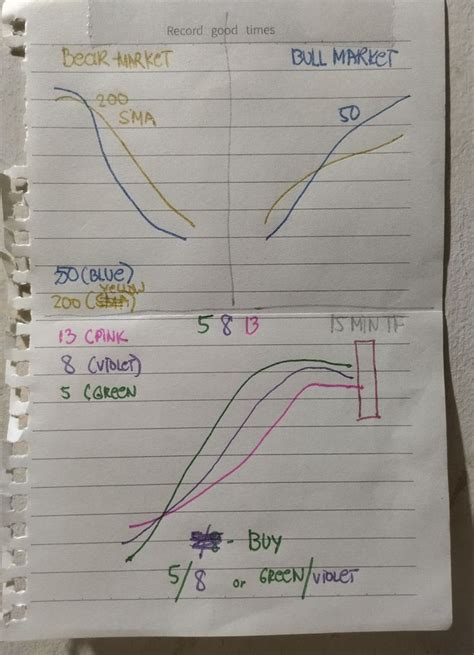 Record good times
Bear MARKET
BULL MARKET
200
SMA
50
50 (BLUE)
200 (YELLOW)
5 8 13
15 MIN TF
13 (PINK
8 (VIOLET)
5 (GREEN
- BUY
5/8 or GREEN/VIOLET